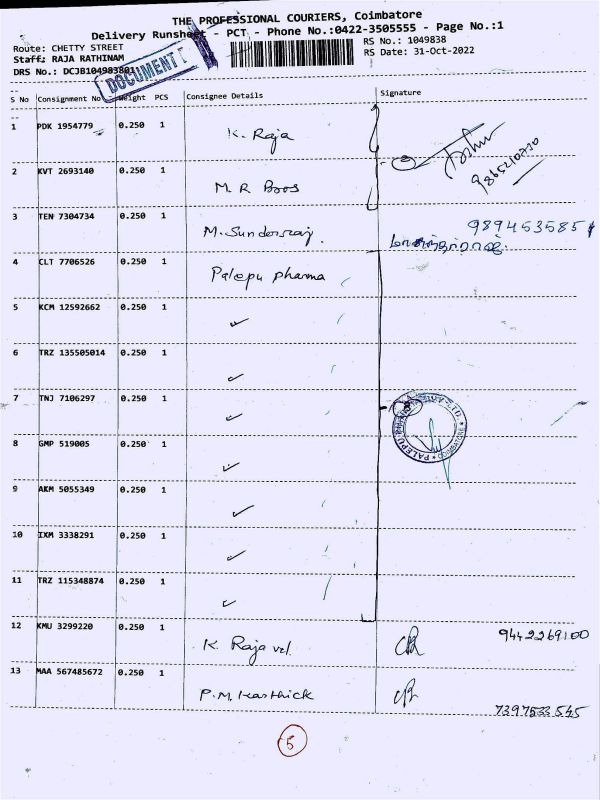 THE PROFESSIONAL COURIERS, Coimbatore
Delivery Runsheet - PCT - Phone No.:0422-3505555 - Page No.:1
Route: CHETTY STREET
RS No.: 1049838
Staff: RAJA RATHINAM
RS Date: 31-Oct-2022
DRS No.: DCJB1049838011
DOCUMENT
S No Consignment No Weight PCS Consignee Details Signature
1 PDK 1954779 0.250 1 K. Raja
9865210730
2 KVT 2693140 0.250 1 M. R Boos
3 TEN 7304734 0.250 1 M. Sundersraj. 9894535851
4 CLT 7706526 0.250 1 Palepu pharma
5 KCM 12592662 0.250 1 ✓
6 TRZ 135505014 0.250 1 ✓
7 TNJ 7106297 0.250 1 ✓
PALEPU COIMBATORE
8 GMP 519005 0.250 1 ✓
9 AKM 5055349 0.250 1 ✓
10 IXM 3338291 0.250 1 ✓
11 TRZ 115348874 0.250 1 ✓
12 KMU 3299220 0.250 1 K. Raja vel. 9442269100
13 MAA 567485672 0.250 1 P.M. Karthick
7397533545
5